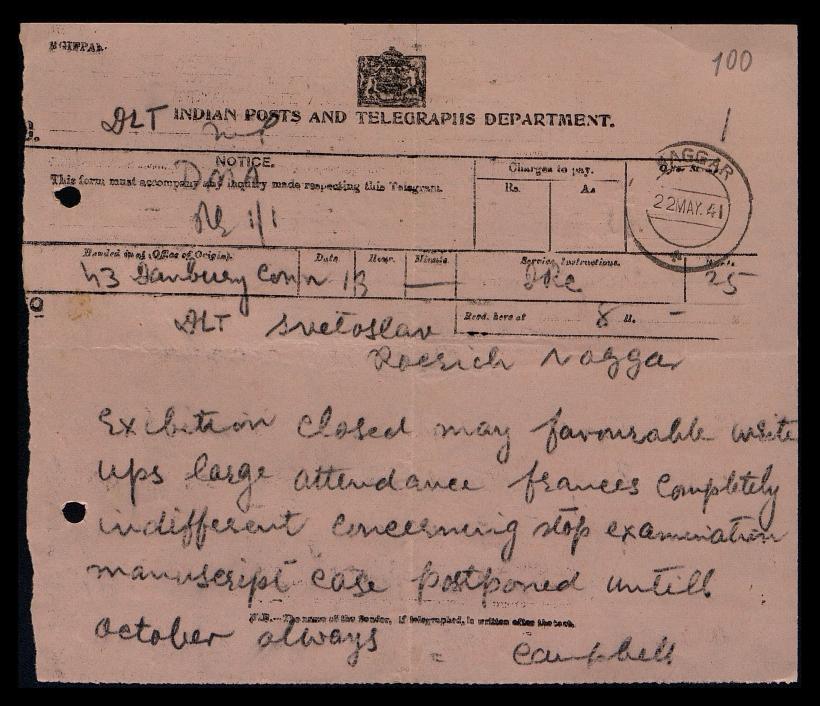 MGIPPAh
100
DLT INDIAN POSTS AND TELEGRAPHS DEPARTMENT.
NOTICE.
This form must accompany any inquiry made respecting this Telegram.
Charges to pay.
Rs. As
NAGGAR
22 MAY. 41
Handed in at (Office of Origin). Date. Hour. Minute. Service Instructions.
43 Danbury Conn 13 — 25
Recd. here at 8 H. –
TO
DLT Svetoslav
Roerich Naggar
Exibition closed may favourable write
ups large attendance frances completely
indifferent concerning stop examination
manuscript case postponed untill
N.B.—The name of the Sender, if telegraphed, is written after the text.
october always = Campbell